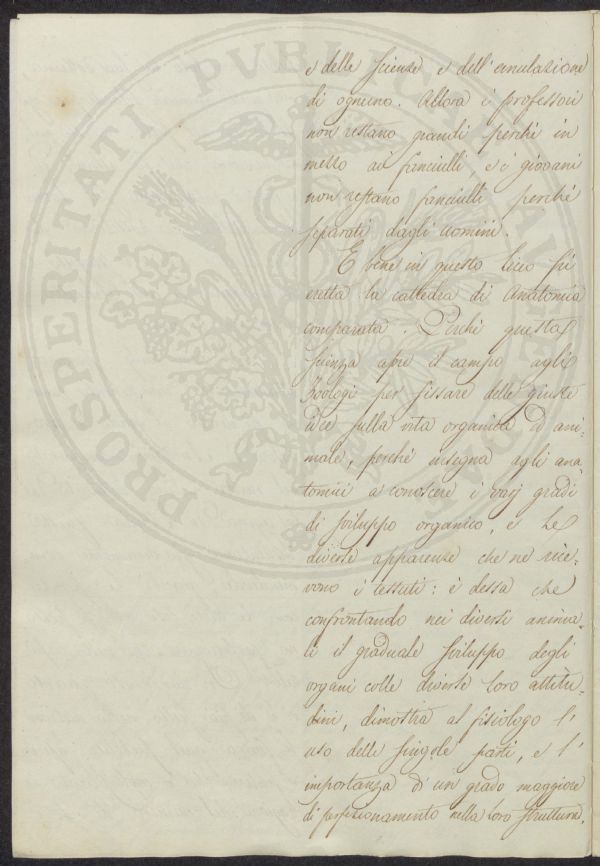 e delle scienze e dell'emulazione
di ognuno. Allora i professori
non restano grandi perchè in
mezzo ai fanciulli e i giovani
non restano fanciulli perchè
separati dagli uomini.
E bene in questo liceo fu
eretta la cattedra di Anatomia
comparata. Perchè questa
scienza apre il campo agli
Zoologi per fissare delle giuste
idee sulla vita organica ed ani-
male, perchè insegna agli ana-
tomici a conoscere i varj gradi
di sviluppo organico, e le
diverse apparenze che ne rice-
vono i tessuti: è dessa che
confrontando nei diversi anima-
li il graduale sviluppo degli
organi colle diverse loro attitu-
dini, dimostra al fisiologo l'
uso delle singole parti, e l'
importanza d'un grado maggiore
di perfezionamento nella loro struttura.
PROSPERITATI PVBLICAE